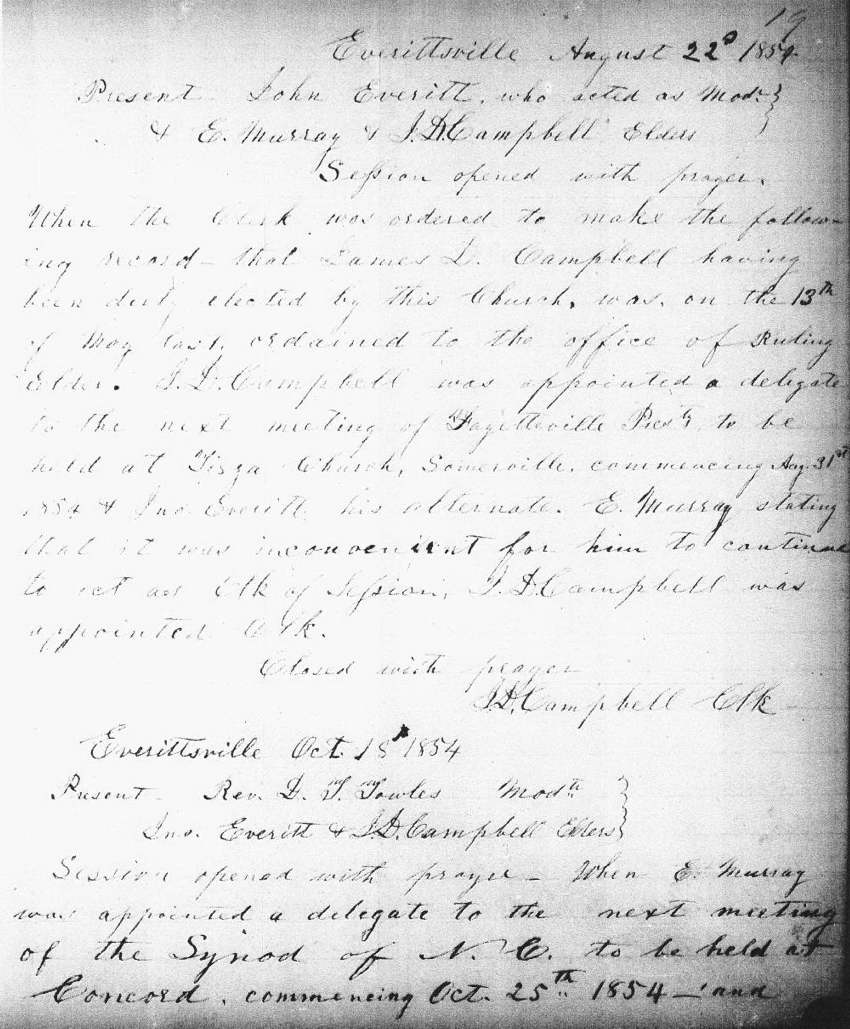 19
Everittsville August 22d 1854
Present John Everitt, who acted as Modr }
& E. Murray & J. D. Campbell Elders
Session opened with prayer.
When the Clerk was ordered to make the follow-
ing record - that James D. Campbell having
been duly elected by this Church, was, on the 13th
of May last, ordained to the office of Ruling
Elder. J. D. Campbell was appointed a delegate
to the next meeting of Fayetteville Presty to be
held at Tirza Church, Somerville, commencing Aug. 31st
1854 & Jno. Everitt his alternate. E. Murray stating
that it was inconvenient for him to continue
to act as Clk of Session, J. D. Campbell was
appointed Clk.
Closed with prayer
J. D. Campbell Clk
Everittsville Oct. 18 1854
Present - Rev. D. T. Towles Modtr }
Jno. Everitt & J. D. Campbell Elders }
Session opened with prayer - When E. Murray
was appointed a delegate to the next meeting
of the Synod of N. C. to be held at
Concord, commencing Oct. 25th 1854 - and